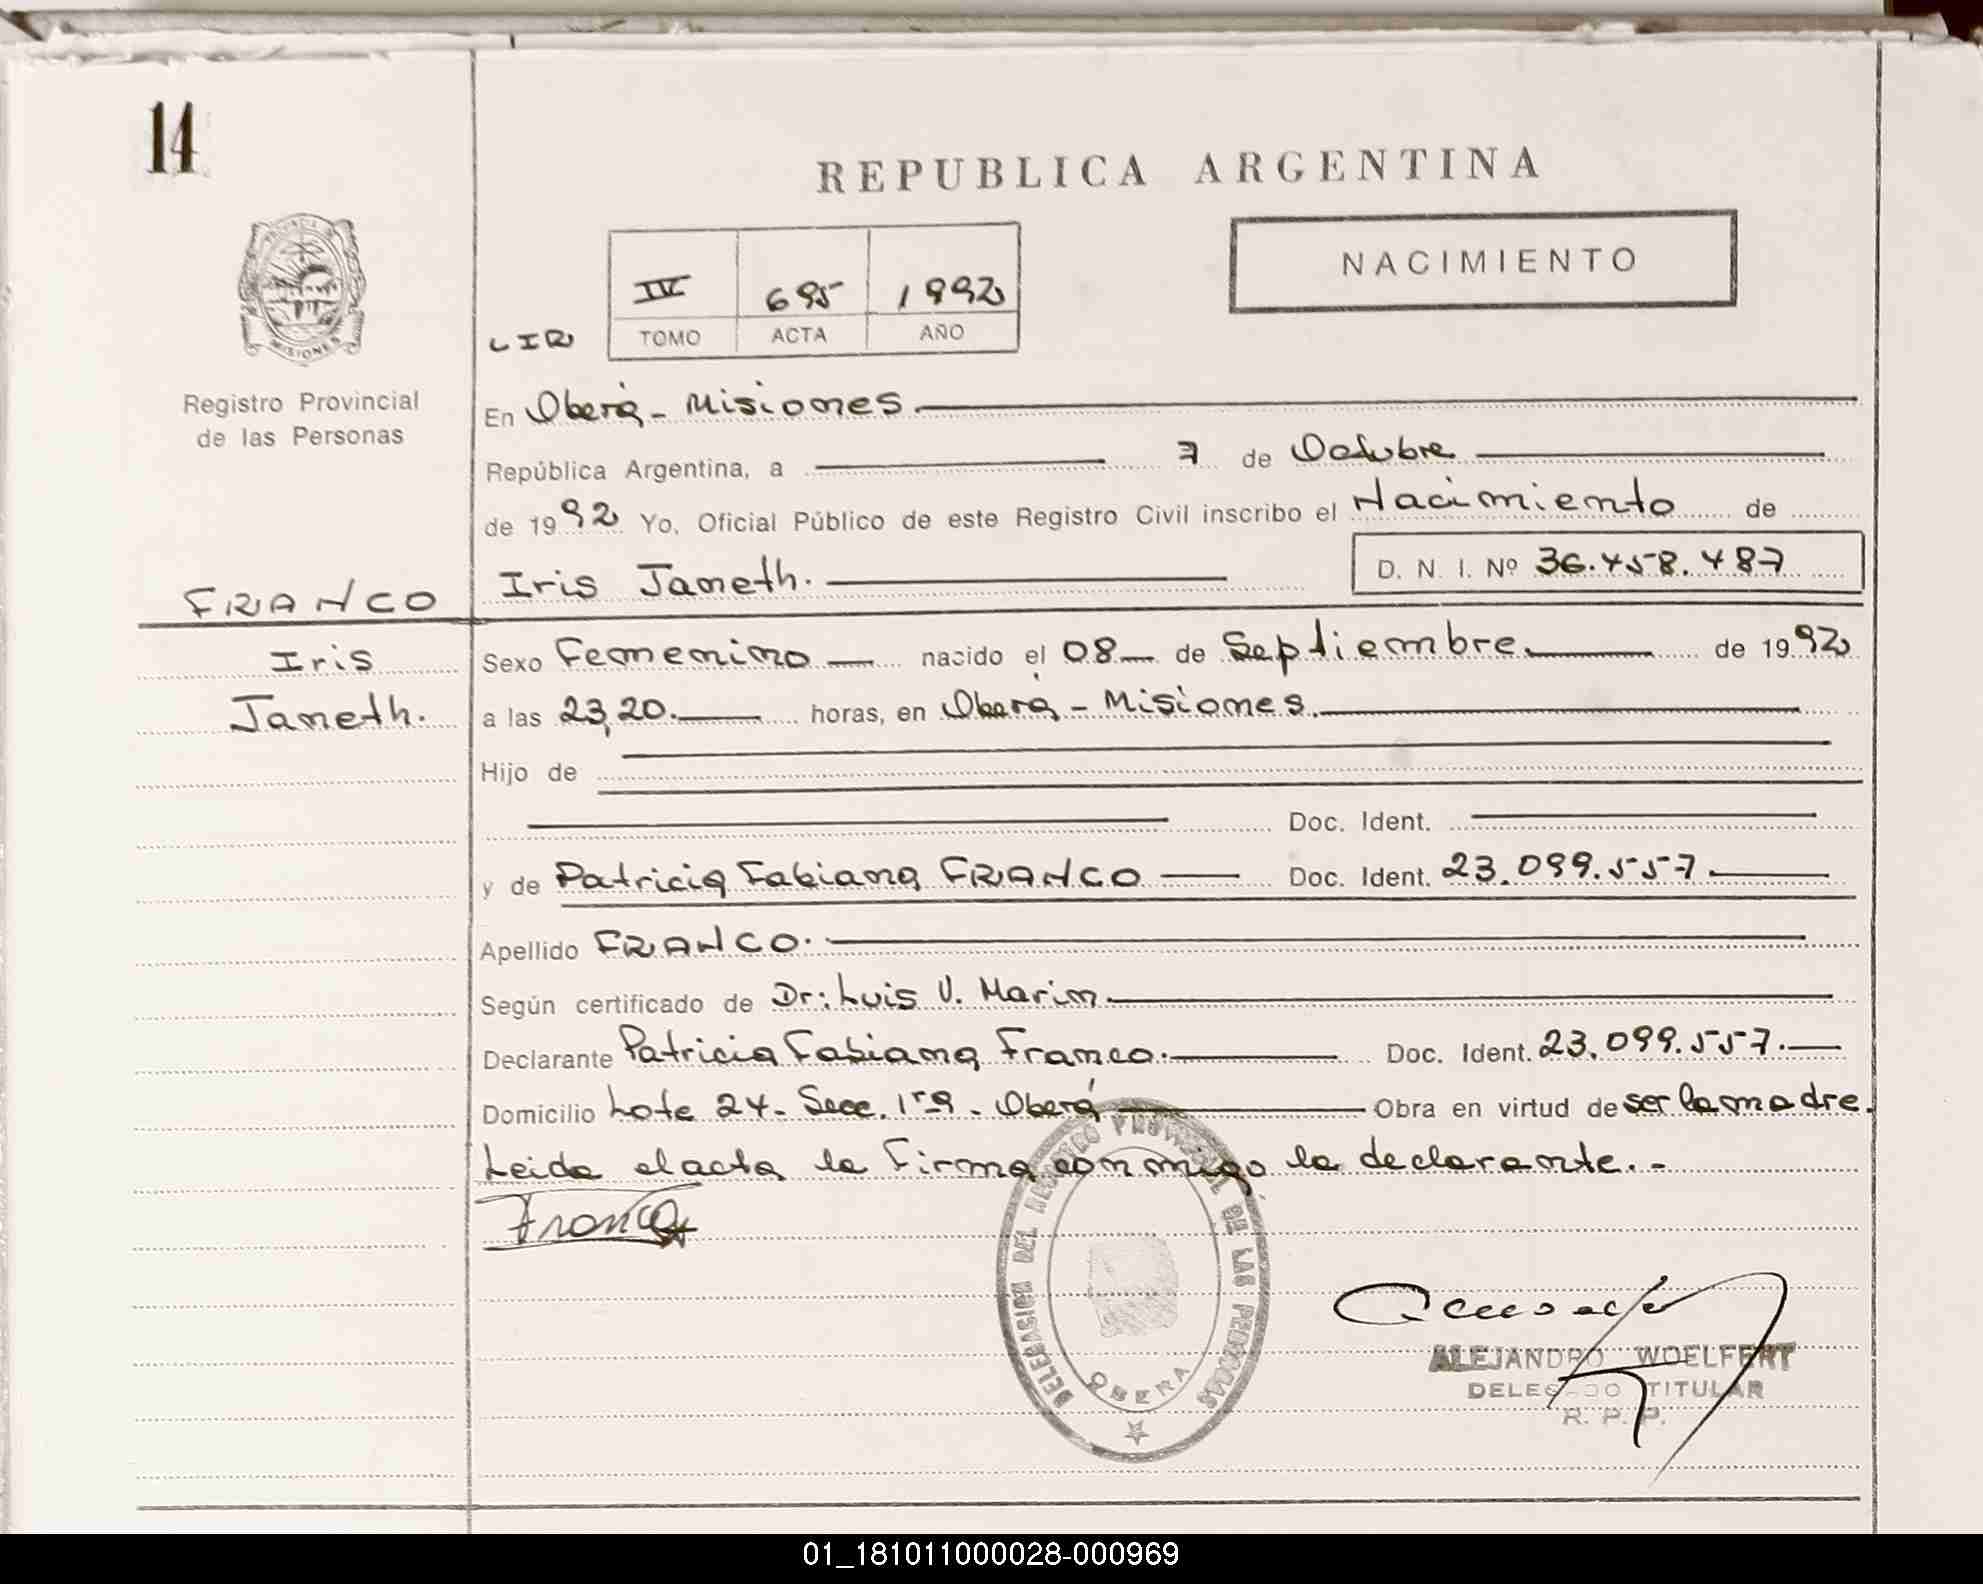 14
REPUBLICA ARGENTINA
NACIMIENTO
IV 695 1992
LIR TOMO ACTA AÑO
MISIONES
Registro Provincial
de las Personas
En Oberá - Misiones.
República Argentina, a 7 de Octubre
de 1992 Yo, Oficial Público de este Registro Civil inscribo el Nacimiento de
Iris Janeth. D. N. I. Nº 36.458.487
FRANCO
Iris
Janeth.
Sexo Femenino nacido el 08 de Septiembre. de 1992
a las 23,20. horas, en Oberá - Misiones.
Hijo de
Doc. Ident.
y de Patricia Fabiana FRANCO Doc. Ident. 23.099.557
Apellido FRANCO.
Según certificado de Dr: Luis V. Marin.
Declarante Patricia Fabiana Franco. Doc. Ident. 23.099.557.
Domicilio Lote 24 - Secc. 1ra. Oberá Obra en virtud de ser la madre.
Leida el acta la Firma conmigo la declarante. -
Franco
DELEGACION DEL REGISTRO PROVINCIAL DE LAS PERSONAS
OBERA
ALEJANDRO WOELFERT
DELEGADO TITULAR
R. P. P.
01_181011000028-000969